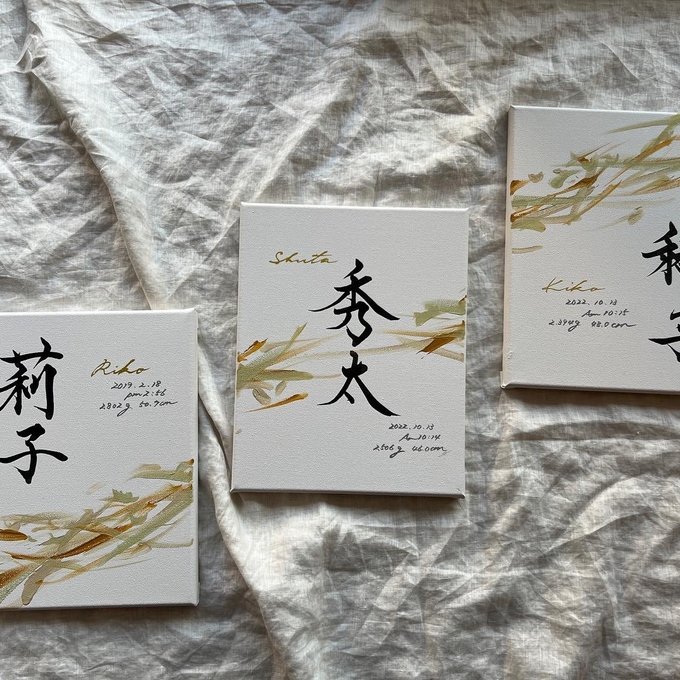 莉子
Riko
2019.2.18
pm 2:56
2802g 50.7cm
Shuta
秀太
2022.10.13
Am 10:14
2506g 46.0cm
Kiko
2022.10.13
Am 10:15
2394g 48.0cm